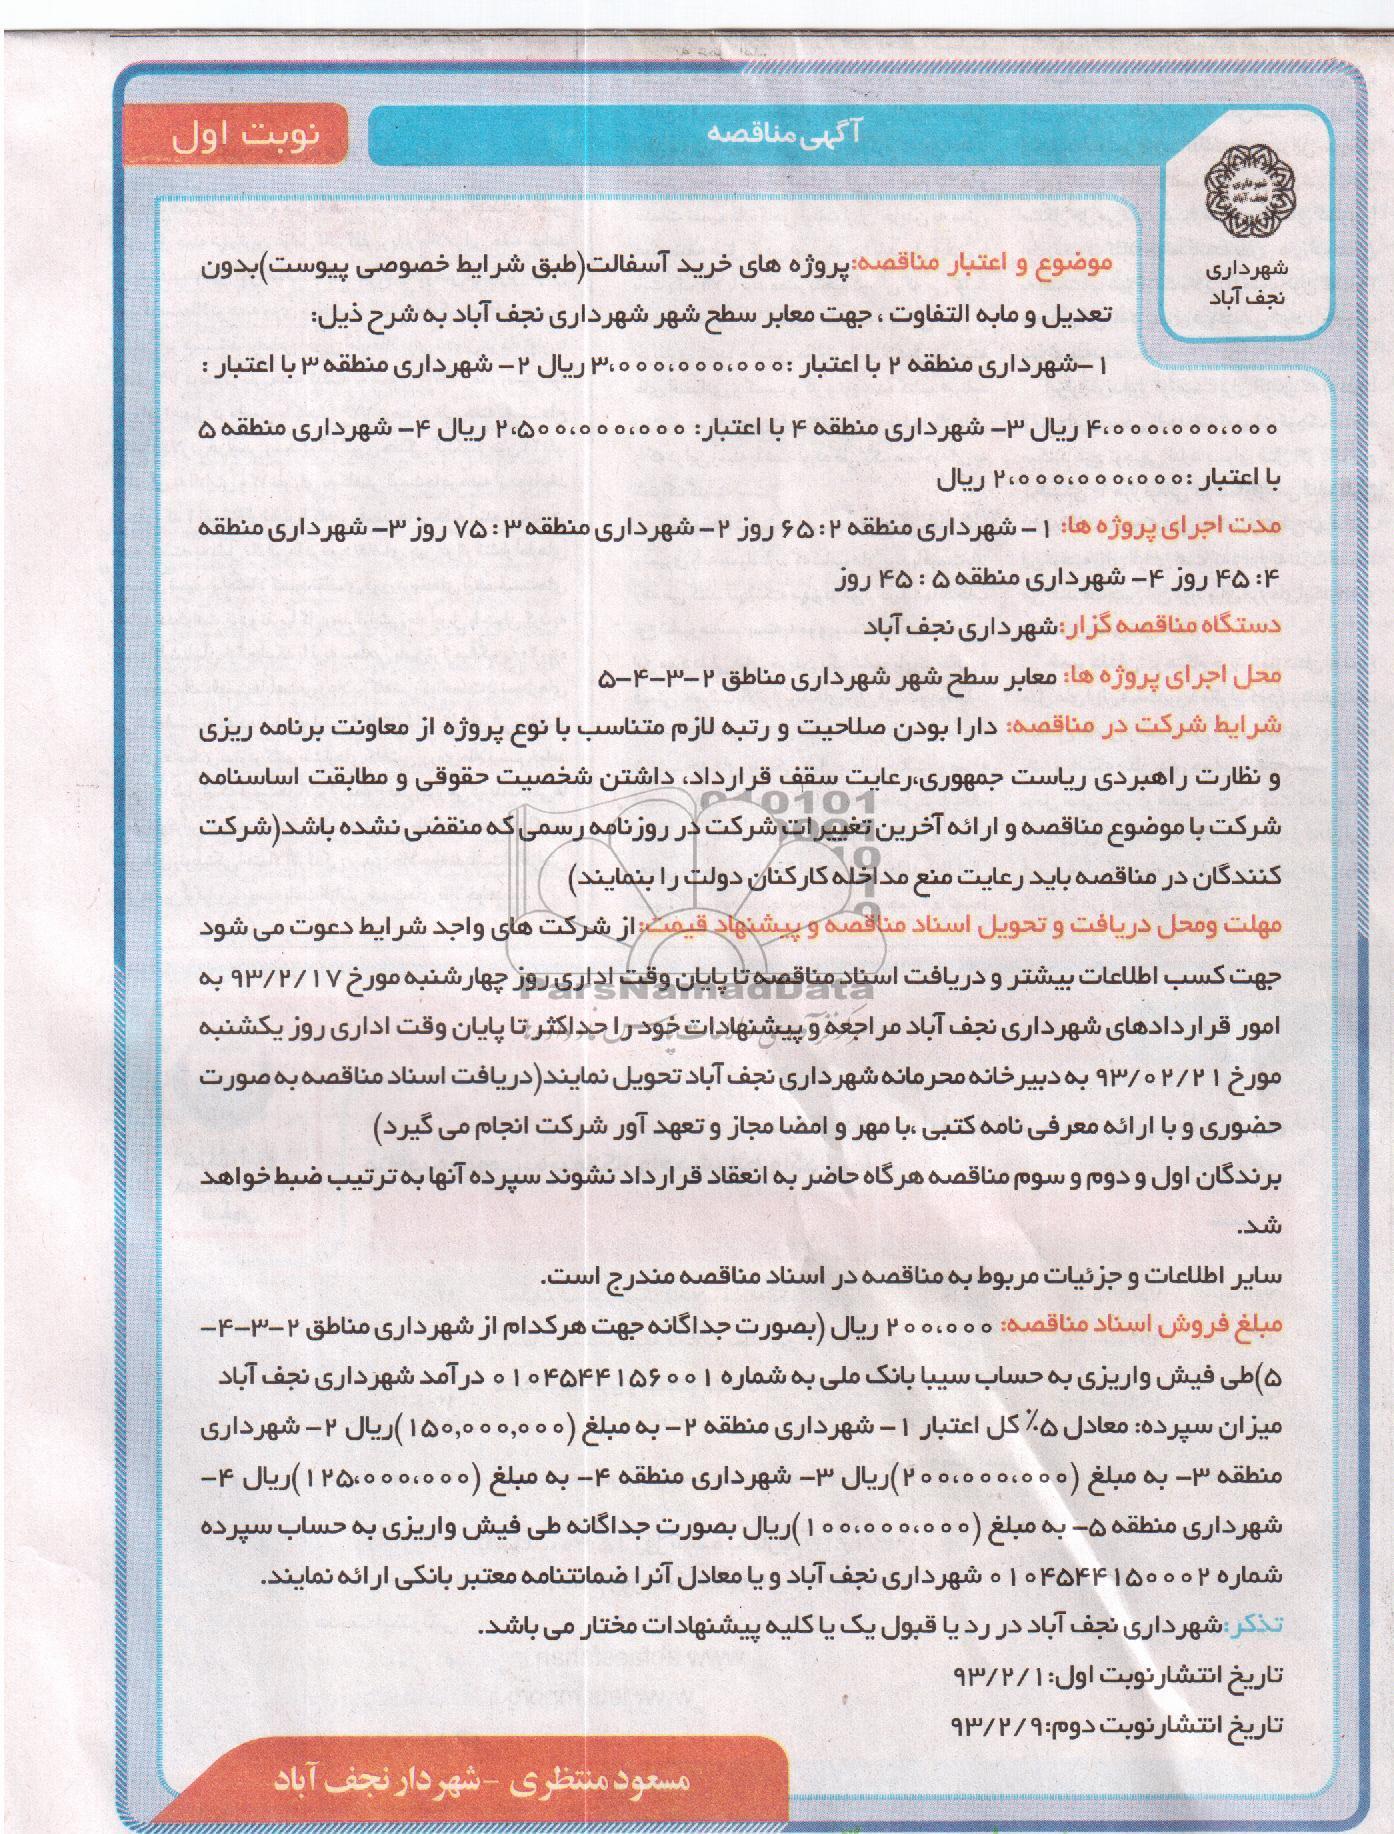 آگهی مناقصه
نوبت اول
شهرداری نجف آباد
شهرداری
نجف آباد
موضوع و اعتبار مناقصه:پروژه های خرید آسفالت(طبق شرایط خصوصی پیوست)بدون
تعدیل و مابه التفاوت ، جهت معابر سطح شهر شهرداری نجف آباد به شرح ذیل:
۱-شهرداری منطقه ۲ با اعتبار :۳،۰۰۰،۰۰۰،۰۰۰ ریال ۲- شهرداری منطقه ۳ با اعتبار :
۴،۰۰۰،۰۰۰،۰۰۰ ریال ۳- شهرداری منطقه ۴ با اعتبار: ۲،۵۰۰،۰۰۰،۰۰۰ ریال ۴- شهرداری منطقه ۵
با اعتبار :۲،۰۰۰،۰۰۰،۰۰۰ ریال
مدت اجرای پروژه ها: ۱- شهرداری منطقه ۲ :۶۵ روز ۲-شهرداری منطقه ۳ :۷۵ روز ۳- شهرداری منطقه
۴ :۴۵ روز ۴- شهرداری منطقه ۵ : ۴۵ روز
دستگاه مناقصه گزار:شهرداری نجف آباد
محل اجرای پروژه ها: معابر سطح شهر شهرداری مناطق ۲-۳-۴-۵
شرایط شرکت در مناقصه: دارا بودن صلاحیت و رتبه لازم متناسب با نوع پروژه از معاونت برنامه ریزی
و نظارت راهبردی ریاست جمهوری،رعایت سقف قرارداد، داشتن شخصیت حقوقی و مطابقت اساسنامه
شرکت با موضوع مناقصه و ارائه آخرین تغییرات شرکت در روزنامه رسمی که منقضی نشده باشد(شرکت
کنندگان در مناقصه باید رعایت منع مداخله کارکنان دولت را بنمایند)
مهلت ومحل دریافت و تحویل اسناد مناقصه و پیشنهاد قیمت:از شرکت های واجد شرایط دعوت می شود
جهت کسب اطلاعات بیشتر و دریافت اسناد مناقصه تا پایان وقت اداری روز چهارشنبه مورخ ۹۳/۲/۱۷ به
ParsNamadData
امور قراردادهای شهرداری نجف آباد مراجعه و پیشنهادات خود را حداکثر تا پایان وقت اداری روز یکشنبه
مورخ ۹۳/۰۲/۲۱ به دبیرخانه محرمانه شهرداری نجف آباد تحویل نمایند(دریافت اسناد مناقصه به صورت
حضوری و با ارائه معرفی نامه کتبی ،با مهر و امضا مجاز و تعهد آور شرکت انجام می گیرد)
برندگان اول و دوم و سوم مناقصه هرگاه حاضر به انعقاد قرارداد نشوند سپرده آنها به ترتیب ضبط خواهد
شد.
سایر اطلاعات و جزئیات مربوط به مناقصه در اسناد مناقصه مندرج است.
مبلغ فروش اسناد مناقصه: ۲۰۰،۰۰۰ ریال (بصورت جداگانه جهت هرکدام از شهرداری مناطق ۲-۳-۴-
۵)طی فیش واریزی به حساب سیبا بانک ملی به شماره ۰۱۰۴۵۴۴۱۵۶۰۰۱ درآمد شهرداری نجف آباد
میزان سپرده: معادل ۵٪ کل اعتبار ۱- شهرداری منطقه ۲- به مبلغ (۱۵۰,۰۰۰,۰۰۰)ریال ۲- شهرداری
منطقه ۳- به مبلغ (۲۰۰،۰۰۰،۰۰۰)ریال ۳- شهرداری منطقه ۴- به مبلغ (۱۲۵،۰۰۰،۰۰۰)ریال ۴-
شهرداری منطقه ۵- به مبلغ (۱۰۰،۰۰۰،۰۰۰)ریال بصورت جداگانه طی فیش واریزی به حساب سپرده
شماره ۰۱۰۴۵۴۴۱۵۰۰۰۲ شهرداری نجف آباد و یا معادل آنرا ضمانتنامه معتبر بانکی ارائه نمایند.
تذکر:شهرداری نجف آباد در رد یا قبول یک یا کلیه پیشنهادات مختار می باشد.
تاریخ انتشارنوبت اول:۹۳/۲/۱
تاریخ انتشارنوبت دوم:۹۳/۲/۹
مسعود منتظری -شهردار نجف آباد